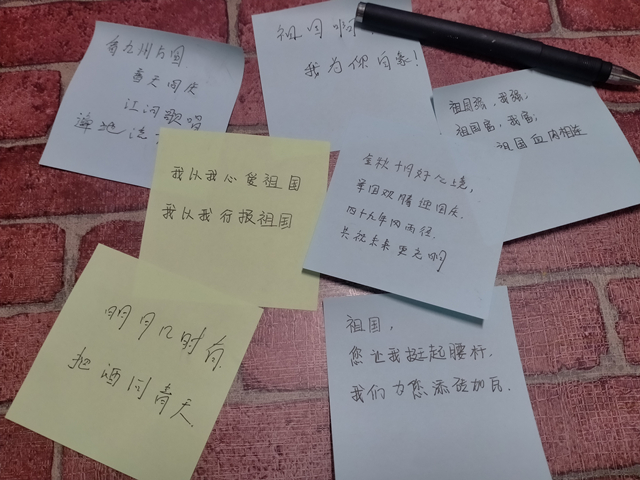 看九州方圆
普天同庆
江河歌唱
祖国啊
我为你自豪!
祖国强,我强,
祖国富,我富;
祖国血肉相连
我以我心爱祖国
我以我行报祖国
金秋十月好心境,
举国欢腾迎国庆.
四十九年风雨径.
共祝未来更光明
明月几时有
把酒问青天
祖国,
您让我挺起腰杆.
我们为您添砖加瓦.